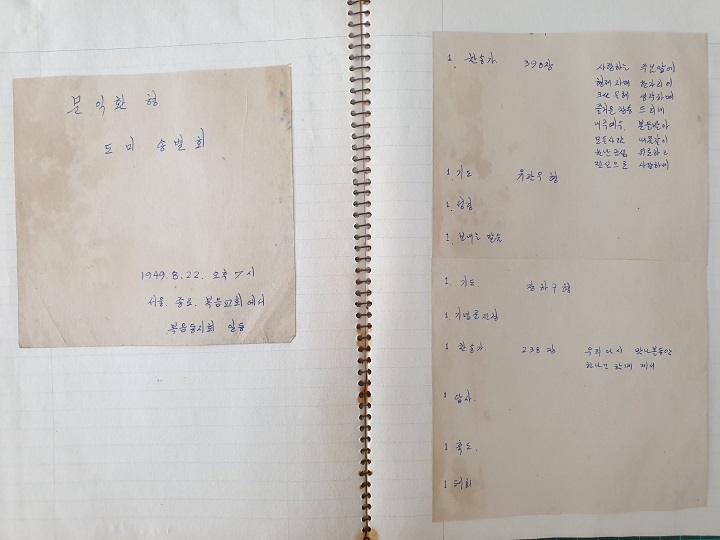 문익환 형
도미 송별회
1949. 8. 22. 오후 7시
서울. 종로. 복음교회에서
복음동지회 일동
1. 찬송가. 398장 사랑하는 주님앞에
형제 자매 한자리에
크신 은혜 생각하며
즐거운 찬송 드리네
내주예수 본을받아
모든사람 내몸같이
환난근심 위로하고
진심으로 사랑하세
1. 기도 유관우 형
1. 성경
1. 보내는 말씀
1. 기도. 장하구 형
1. 기념품전정
1 찬송가. 238장 우리다시 만나볼동안
하나님 함께 계셔
1 답사.
1 축도.
1 폐회